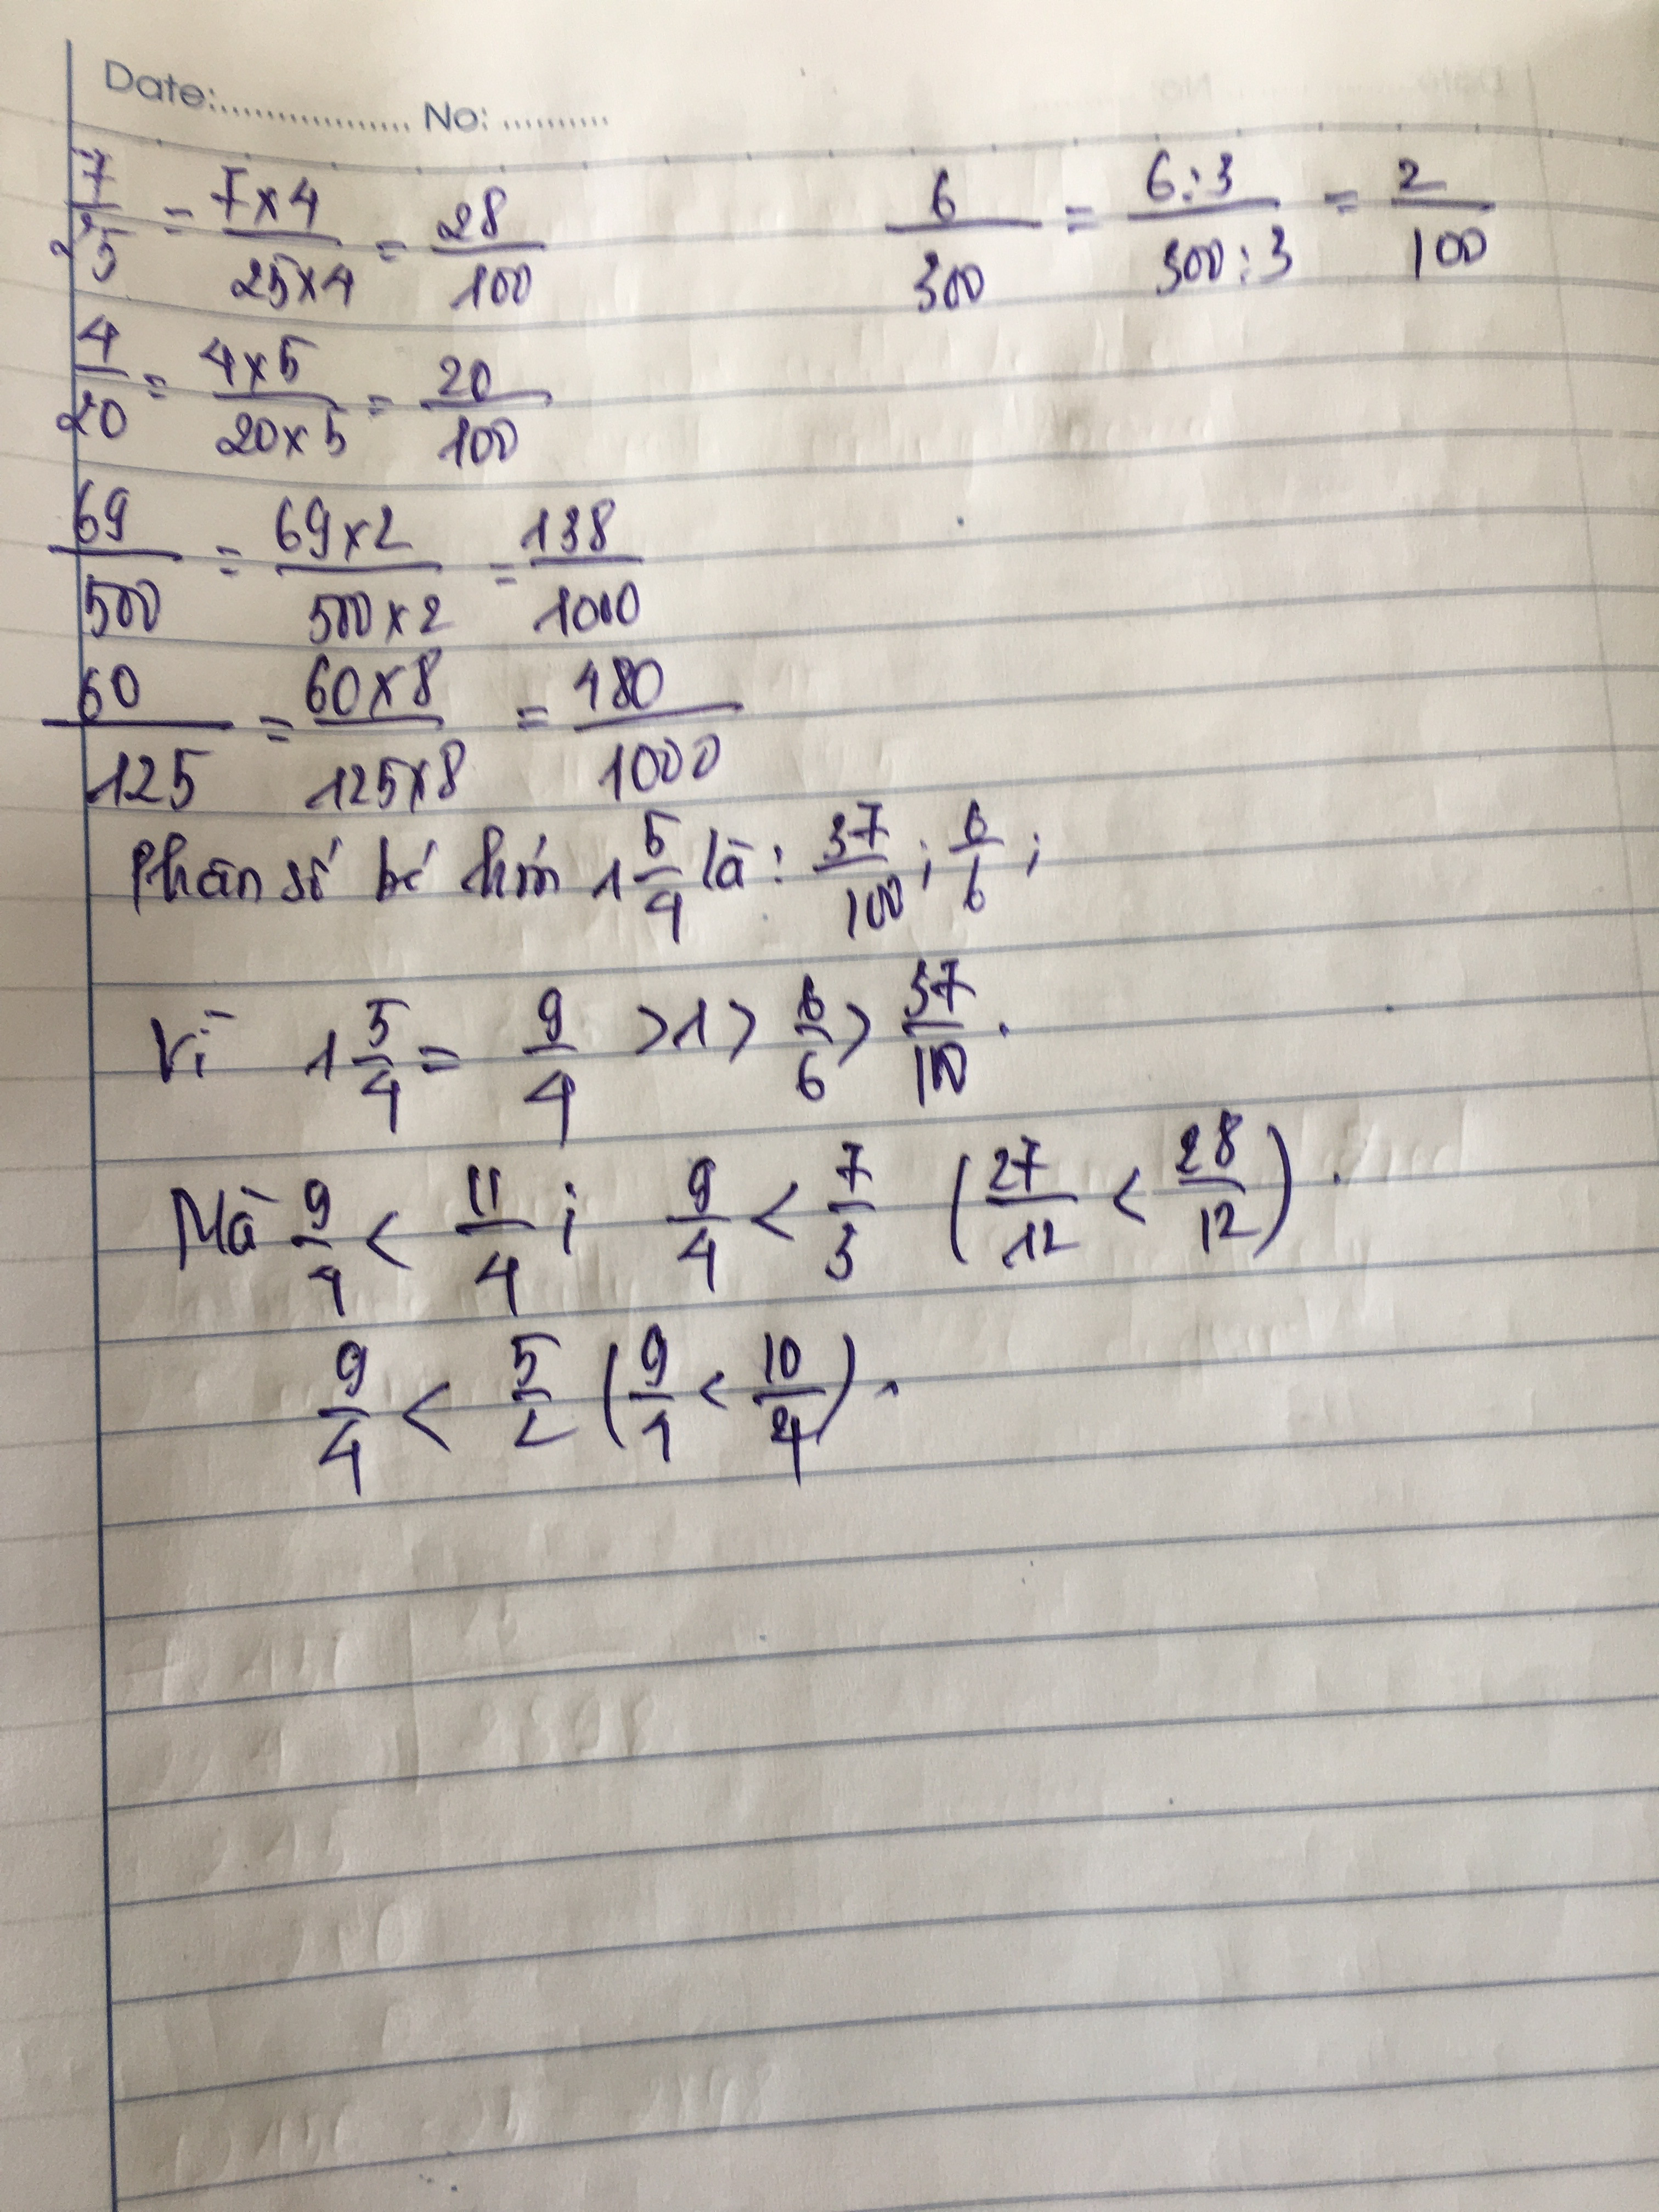 Date:.................. No: ..........
7/25 = 7x4/25x4 = 28/100
6/300 = 6:3/300:3 = 2/100
4/20 = 4x5/20x5 = 20/100
69/500 = 69x2/500x2 = 138/1000
60/125 = 60x8/125x8 = 480/1000
Phân số bé hơn 1 5/4 là: 37/100; 6/6;
Vì 1 5/4 = 9/4 > 1 > 6/6 > 37/100.
Mà 9/4 < 11/4; 9/4 < 7/3 (27/12 < 28/12).
9/4 < 5/2 (9/4 < 10/4).